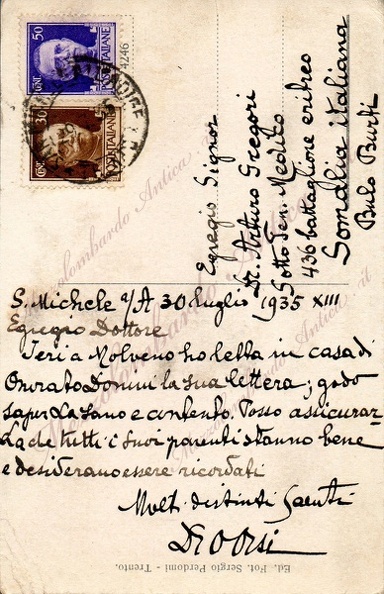 Egregio Signor
Dr. Arturo Gregori
Sotto Ten. Medico
436 battaglione eritreo
Somalia italiana
Bulo Burti
S. Michele a/A 30 luglio 1935 XIII
Egregio Dottore
Ieri a Molveno ho letta in casa di
Onorato Donini la sua lettera; godo
saperLa sano e contento. Posso assicurar
La che tutti i Suoi parenti stanno bene
e desiderano essere ricordati
Molti distinti saluti
Dr O Orsi
Ed. Fot. Sergio Perdomi - Trento.
50 CENT
POSTE ITALIANE
30 CENT
POSTE ITALIANE
Mezzolombardo Antica .it